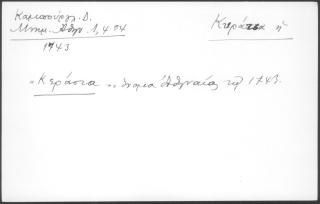 Καμπούρογλ. Δ.
Μνημ. Αθην. 1, 404
1743
Κεράτσα ἡ
"Κεράτσα" ὄνομα Ἀθηναίας τῷ 1743.